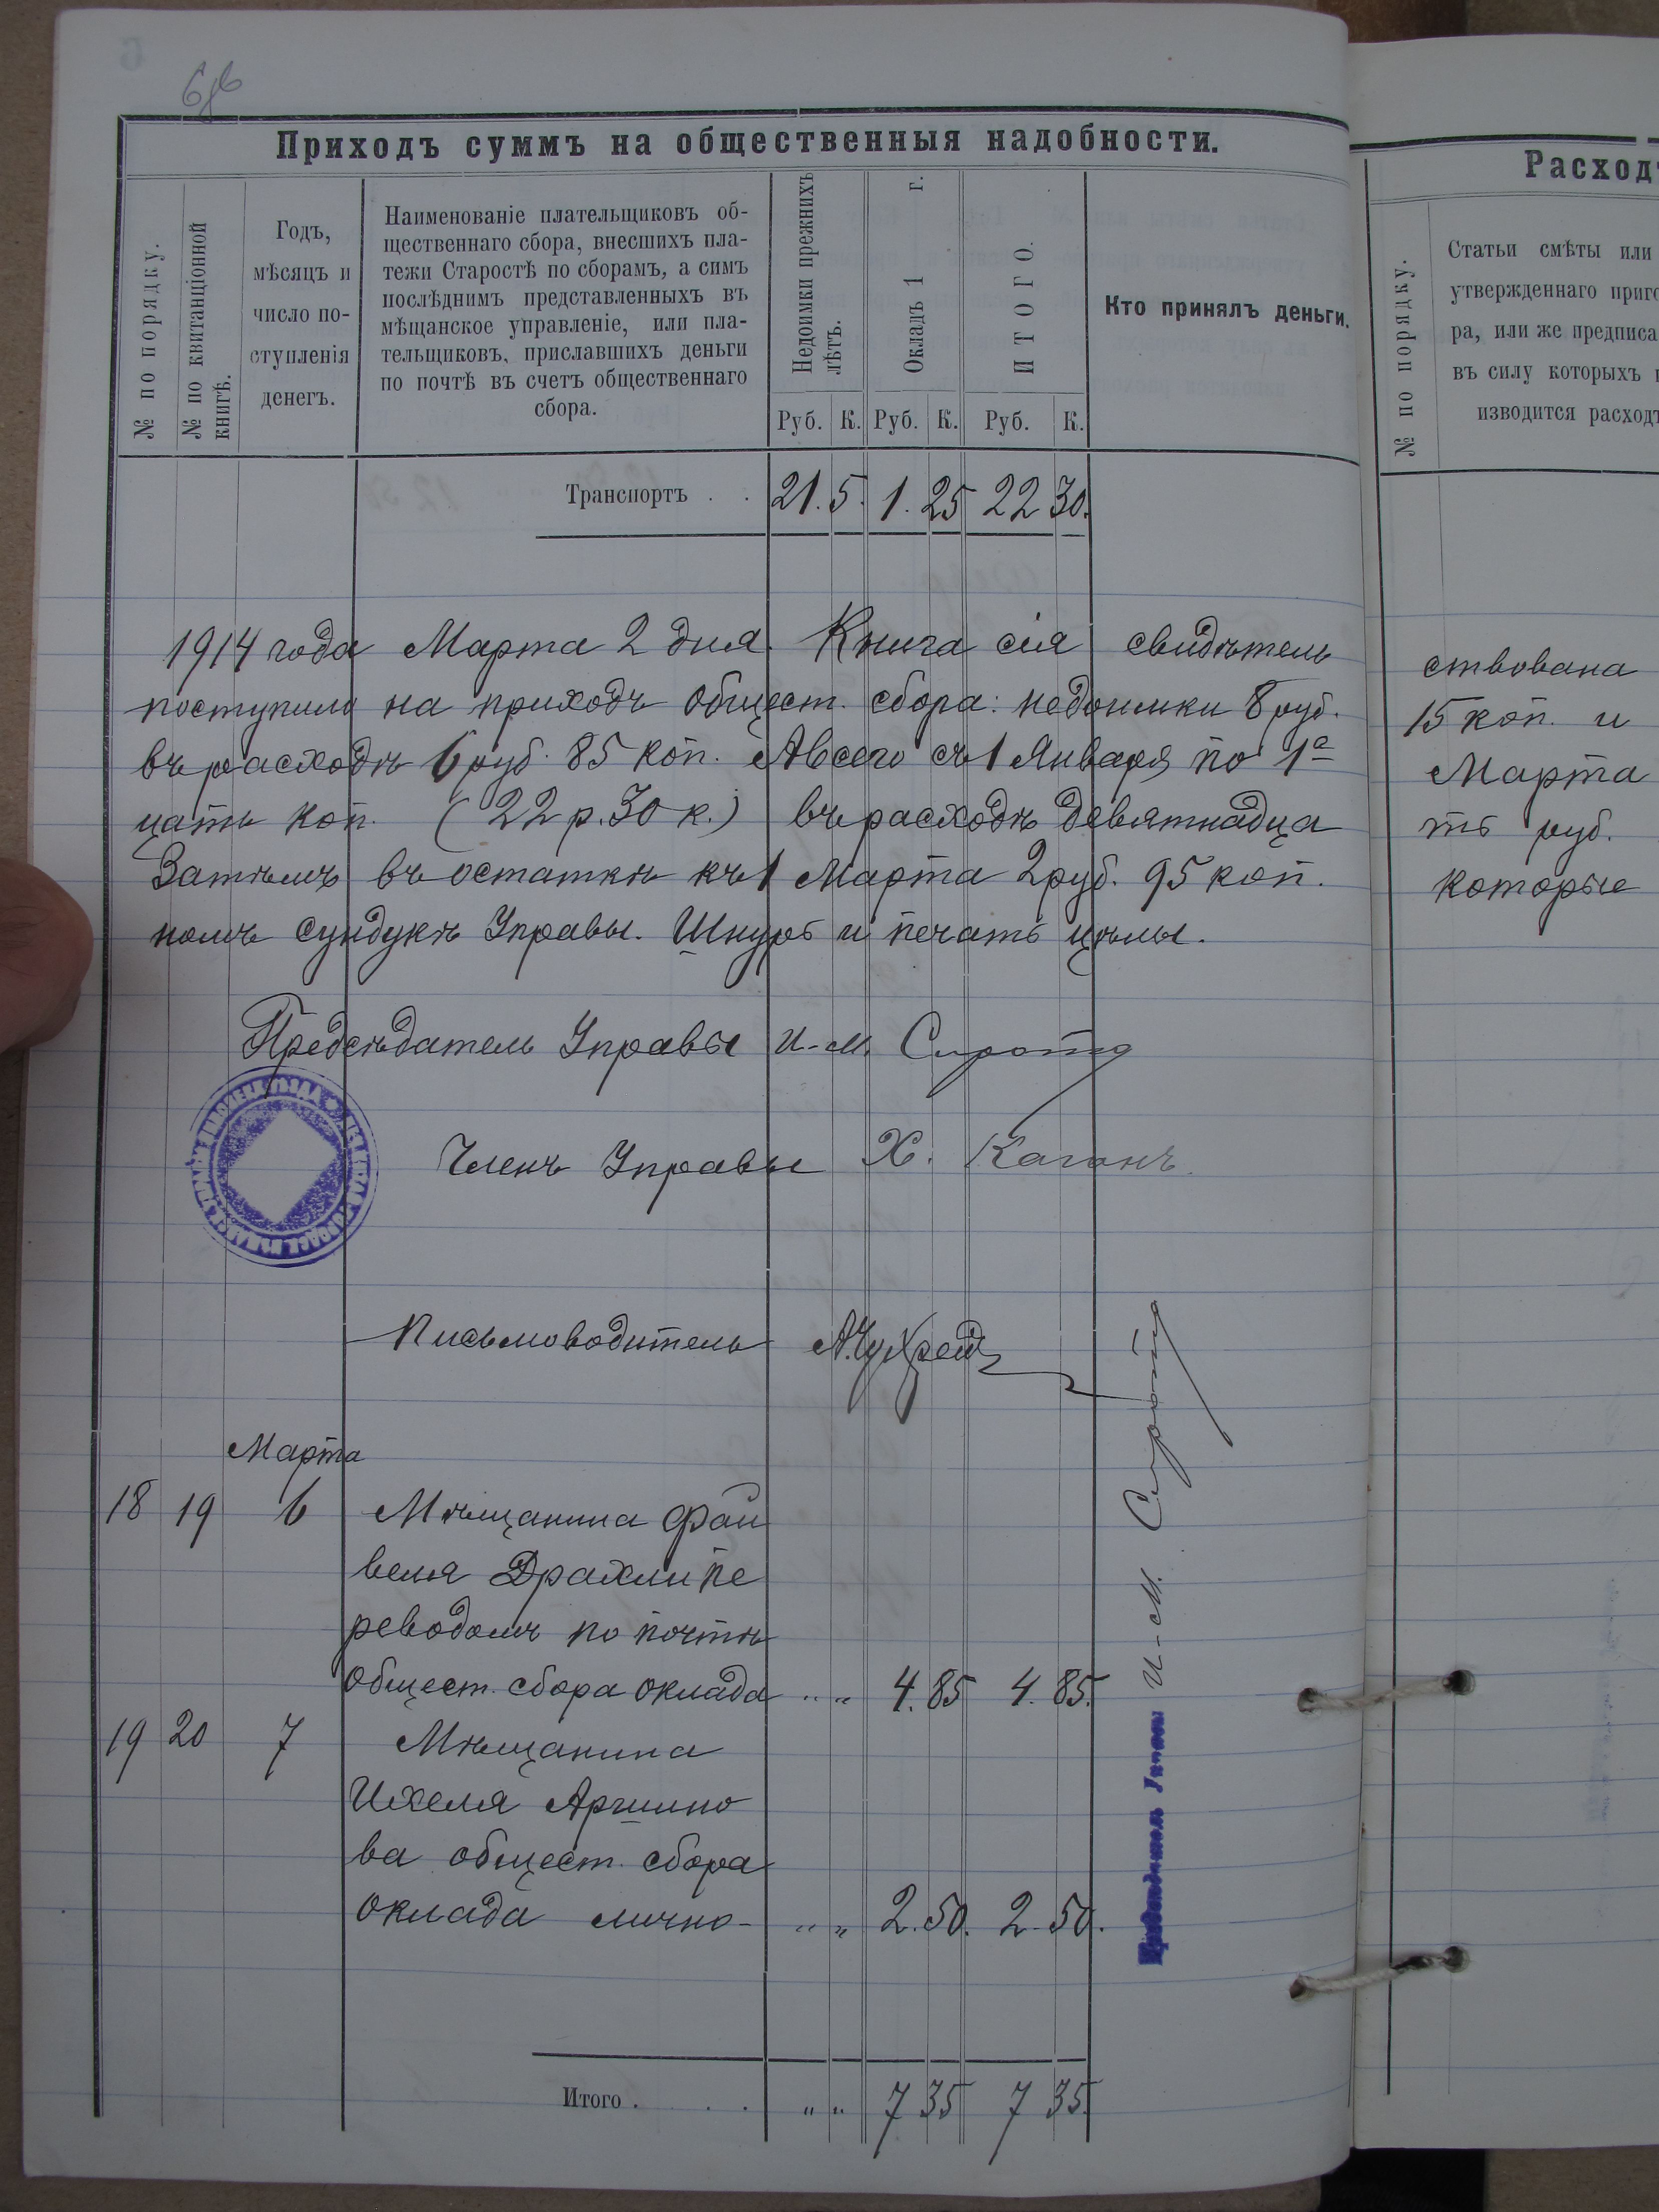 6/б
Приходъ суммъ на общественныя надобности.
№ по порядку.
№ по квитанціонной книгѣ.
Годъ,
мѣсяцъ и
число по-
ступленія
денегъ.
Наименованіе плательщиковъ об-
щественнаго сбора, внесшихъ пла-
тежи Старостѣ по сборамъ, а симъ
послѣднимъ представленныхъ въ
мѣщанское управленіе, или пла-
тельщиковъ, приславшихъ деньги
по почтѣ въ счетъ общественнаго
сбора.
Недоимки прежнихъ
лѣтъ.
Окладъ 1 г.
ИТОГО.
Кто принялъ деньги.
Руб. К. Руб. К. Руб. К.
Транспортъ . . 21. 5. 1. 25 22 30.
1914 года Марта 2 дня. Книга сія свидѣтель
поступило на приходъ общест. сбора: недоимки 8 руб.
въ расходѣ 6 руб. 85 коп. А всего съ 1 Января по 1е
цать коп. (22 р. 30 к.) въ расходѣ девятнадца
Затѣмъ въ остаткѣ къ 1 Марта 2 руб. 95 коп.
номъ сундукѣ Управы. Шнуръ и печать цѣлы.
Предсѣдатель Управы И-М. Сирота
Членъ Управы Х. Каганъ.
Письмоводитель
Марта
18 19 6 Мѣщанина Фай
веля Драхли пе
реводомъ по почтѣ
Общест. сбора оклада „ „ 4. 85 4. 85.
19 20 7 Мѣщанина
Ихеля Аршино
ва общест. сбора
оклада лично- „ „ 2. 50. 2. 50.
Предсѣдатель Управы И-М. Сирота
Итого . . . . „ „ 7 35 7 35.
Расходъ
№ по порядку.
Статьи смѣты или
утвержденнаго приго
ра, или же предписа
въ силу которыхъ
изводится расходъ
ствована
15 коп. и
Марта
ть руб.
которые